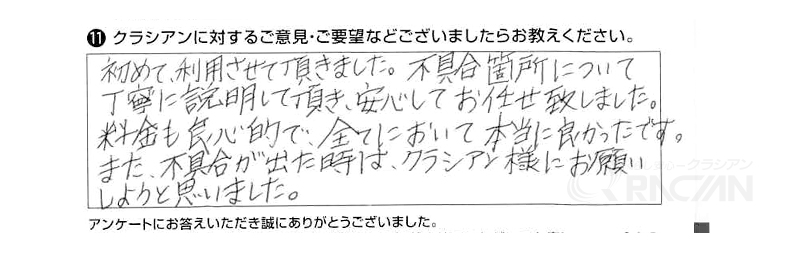 ⑪ クラシアンに対するご意見・ご要望などございましたらお教えください。
初めて、利用させて頂きました。不具合箇所について
丁寧に説明して頂き、安心してお任せ致しました。
料金も良心的で、全てにおいて本当に良かったです。
また、不具合が出た時は、クラシアン様にお願い
しようと思いました。
アンケートにお答えいただき誠にありがとうございました。